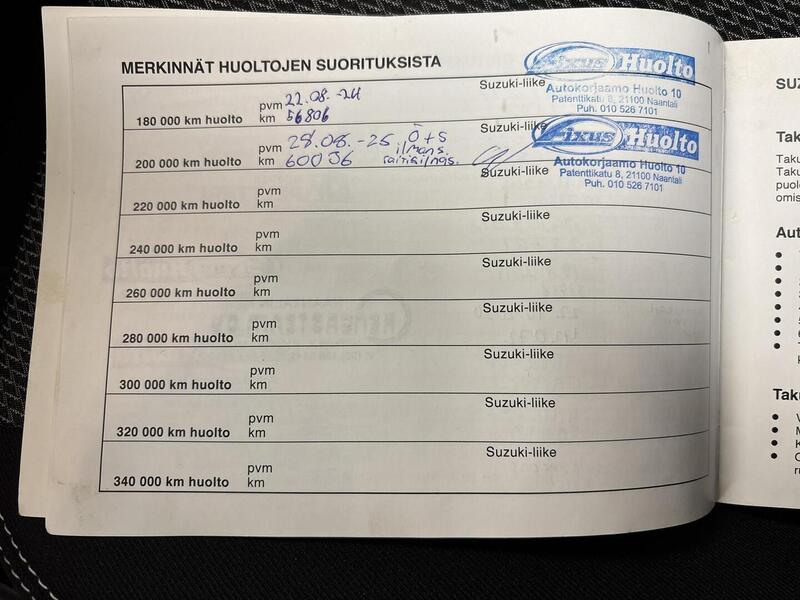 MERKINNÄT HUOLTOJEN SUORITUKSISTA
180 000 km huolto pvm 22.08.-24 Suzuki-liike
km 56806
Fixus Huolto
Autokorjaamo Huolto 10
Patenttikatu 8, 21100 Naantali
Puh. 010 526 7101
200 000 km huolto pvm 28.08.-25 Ö+S Suzuki-liike
km 60036 ilmans.
Fixus Huolto
Autokorjaamo Huolto 10
Patenttikatu 8, 21100 Naantali
Puh. 010 526 7101
220 000 km huolto pvm Suzuki-liike
km
240 000 km huolto pvm Suzuki-liike
km
260 000 km huolto pvm Suzuki-liike
km
280 000 km huolto pvm Suzuki-liike
km
300 000 km huolto pvm Suzuki-liike
km
320 000 km huolto pvm Suzuki-liike
km
340 000 km huolto pvm Suzuki-liike
km
SUZ
Tak
Taku
Taku
puol
omis
Aut
Taku